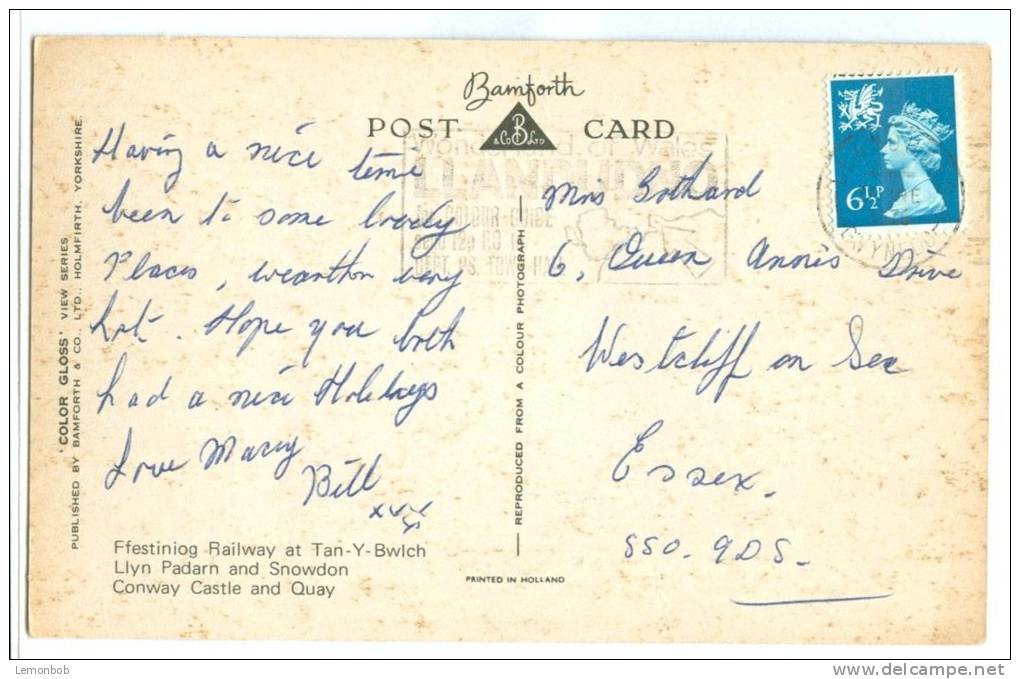 Bamforth
& Co B LTD
POST CARD
Having a nice time
been to some lovely
Places, wearthon very
hot. Hope you both
had a nice Holidays
Love Macey
Bill
Ffestiniog Railway at Tan-Y-Bwlch
Llyn Padarn and Snowdon
Conway Castle and Quay
'COLOR GLOSS' VIEW SERIES
PUBLISHED BY BAMFORTH & CO., LTD., HOLMFIRTH, YORKSHIRE.
REPRODUCED FROM A COLOUR PHOTOGRAPH
PRINTED IN HOLLAND
Wonderland of Wales
LLANDUDNO
COLOUR GUIDE
TOWN HALL
6½P
GWYNEDD
Mrs Gothard
6, Queen Annis Drive
Westcliff on Sea
Essex.
SSO. 9DS.
Lemonbob
www.delcampe.net